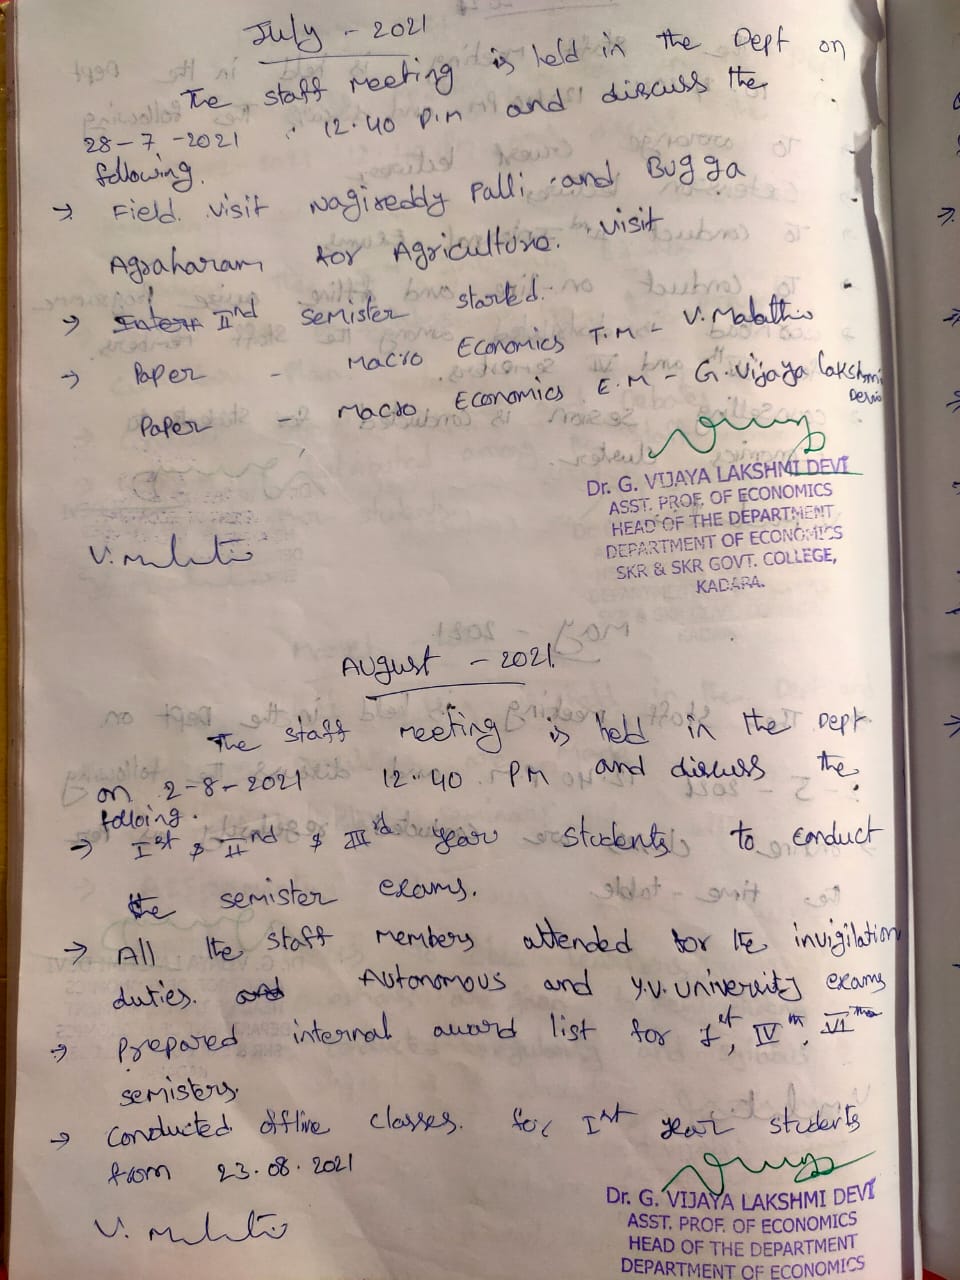 July - 2021
The staff meeting is held in the Dept on
28-7-2021 12.40 P.M and discuss the
following.
→ Field visit Nagireddy Palli and Bugga
Agraharam for Agriculture visit
→ IInd semister started.
→ Paper - Macro Economics T.M - V. Malathi
Paper - Macro Economics E.M - G. Vijaya Lakshmi
Devi
Dr. G. VIJAYA LAKSHMI DEVI
ASST. PROF. OF ECONOMICS
HEAD OF THE DEPARTMENT
DEPARTMENT OF ECONOMICS
SKR & SKR GOVT. COLLEGE,
KADAPA.
August - 2021
The staff meeting is held in the Dept
on 2-8-2021 12.40 PM and discuss the
folloing.
→ Ist & IInd & IIIrd year students to conduct
the semister exams.
→ All the staff members attended for the invigilation
duties. Autonomous and Y.V. University exams
→ Prepared internal award list for Ist, IVth, VIth
semisters.
→ Conducted offline classes. for Ist year students
from 23.08.2021
Dr. G. VIJAYA LAKSHMI DEVI
ASST. PROF. OF ECONOMICS
HEAD OF THE DEPARTMENT
DEPARTMENT OF ECONOMICS